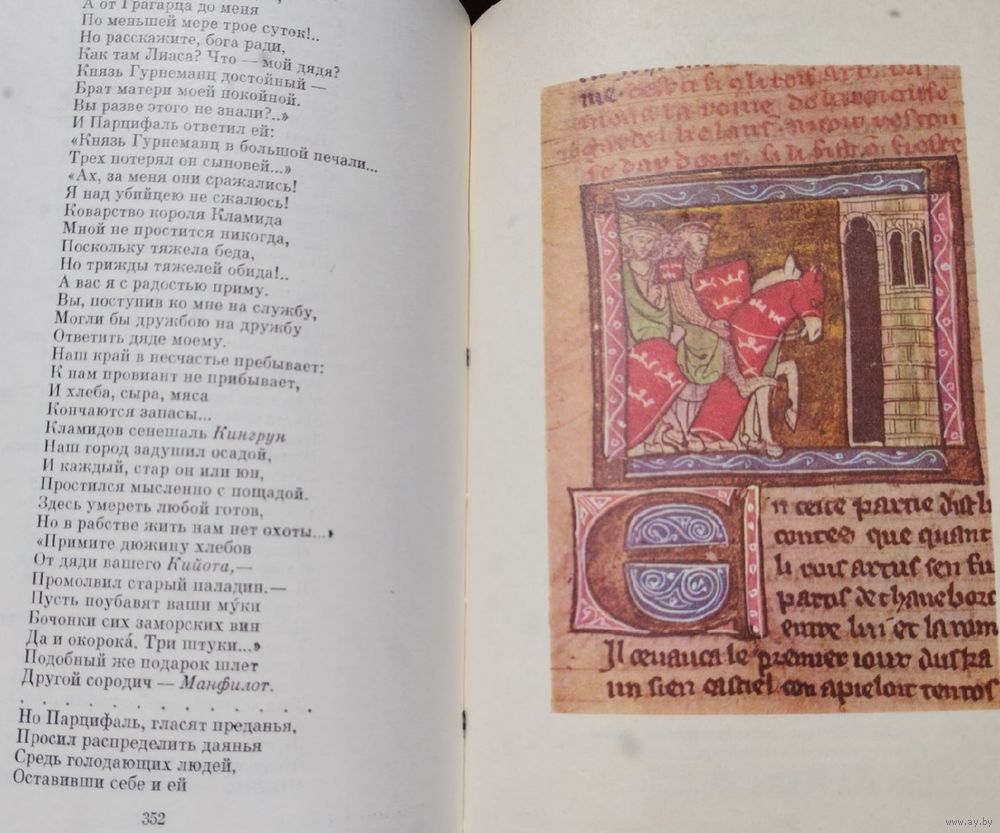 А от Грагарца до меня
По меньшей мере трое суток!..
Но расскажите, бога ради,
Как там Лиаса? Что — мой дядя?
Князь Гурнеманц достойный —
Брат матери моей покойной.
Вы разве этого не знали?..»
И Парцифаль ответил ей:
«Князь Гурнеманц в большой печали...
Трех потерял он сыновей...»
«Ах, за меня они сражались!
Я над убийцею не сжалюсь!
Коварство короля Кламида
Мной не простится никогда,
Поскольку тяжела беда,
Но трижды тяжелей обида!..
А вас я с радостью приму.
Вы, поступив ко мне на службу,
Могли бы дружбою на дружбу
Ответить дяде моему.
Наш край в несчастье пребывает:
К нам провиант не прибывает,
И хлеба, сыра, мяса
Кончаются запасы...
Кламидов сенешаль Кингрун
Наш город задушил осадой,
И каждый, стар он или юн,
Простился мысленно с пощадой.
Здесь умереть любой готов,
Но в рабстве жить нам нет охоты...»
«Примите дюжину хлебов
От дяди вашего Кийота,—
Промолвил старый паладин.—
Пусть поубавят ваши му́ки
Бочонки сих заморских вин
Да и окорока́. Три штуки...»
Подобный же подарок шлет
Другой сородич — Манфилот.
. . . . . . . . . . . . . .
Но Парцифаль, гласят преданья,
Просил распределить даянья
Средь голодающих людей,
Оставивши себе и ей
352
En ceste partie dist li
contes que quant
li rois artus sen fu
partis de
entre lui et la roin
Il cevauca le premier iour
un sien castiel con apieloit
www.ay.by